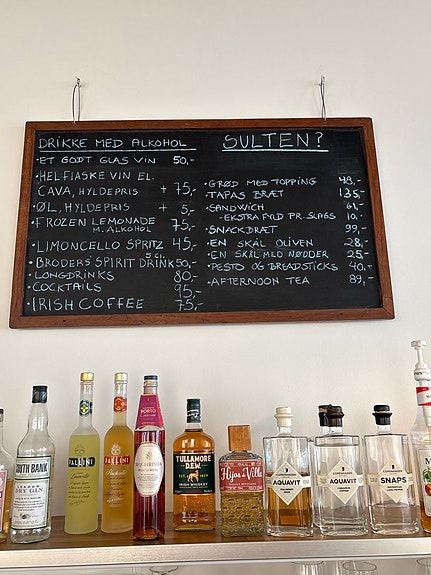 DRIKKE MED ALKOHOL
• ET GODT GLAS VIN 50,-
• HELFLASKE VIN EL.
CAVA, HYLDEPRIS + 75,-
• ØL, HYLDEPRIS + 5,-
• FROZEN LEMONADE 75,-
M. ALKOHOL
• LIMONCELLO SPRITZ 45,-
• BRODERS SPIRIT DRINK 50,-
5 CL.
• LONGDRINKS 80,-
• COCKTAILS 95,-
• IRISH COFFEE 75,-
SULTEN?
• GRØD MED TOPPING 48,-
• TAPAS BRÆT 135,-
• SANDWICH 61,-
- EKSTRA FYLD PR. SLAGS 10,-
• SNACKBRÆT 99,-
• EN SKÅL OLIVEN 28,-
• EN SKÅL MED NØDDER 25,-
• PESTO OG BREADSTICKS 40,-
• AFTERNOON TEA 89,-
SOUTH BANK
DRY GIN
PALLINI
Limoncello
PALLINI
PORTO
TULLAMORE
D.E.W.
IRISH WHISKEY
Hijos de Villa
AQUAVIT
AQUAVIT
SNAPS